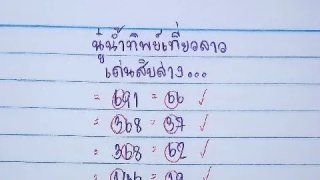 นู๋น้ำทิพย์เที่ยวลาว
เด่นสิบล่าง...
= 691 = 66 ✓
= 368 = 37 ✓
= 368 = 62 ✓